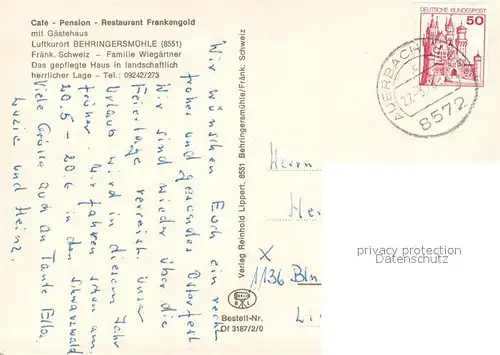 Cafe - Pension - Restaurant Frankengold
mit Gästehaus
Luftkurort BEHRINGERSMÜHLE (8551)
Fränk. Schweiz - Familie Wiegärtner
Das gepflegte Haus in landschaftlich
herrlicher Lage - Tel.: 09242/273
Wir wünschen Euch ein recht
frohes und gesundes Osterfest
Wir sind wieder über die
Feiertage verreist. Unser
Urlaub wird in diesem Jahr
früher. Wir fahren schon am
20.5 - 20.6 in den Schwarzwald
Viele Grüße auch an Tante Ella.
Luzie und Heinz.
Verlag Reinhold Lippert, 8551 Behringersmühle/Fränk. Schweiz
Bestell-Nr.
Of 3187/2/0
DEUTSCHE BUNDESPOST
50
AUERBACH
8572
Herrn
He
X
1136 Bln
Li
privacy protection
Datenschutz